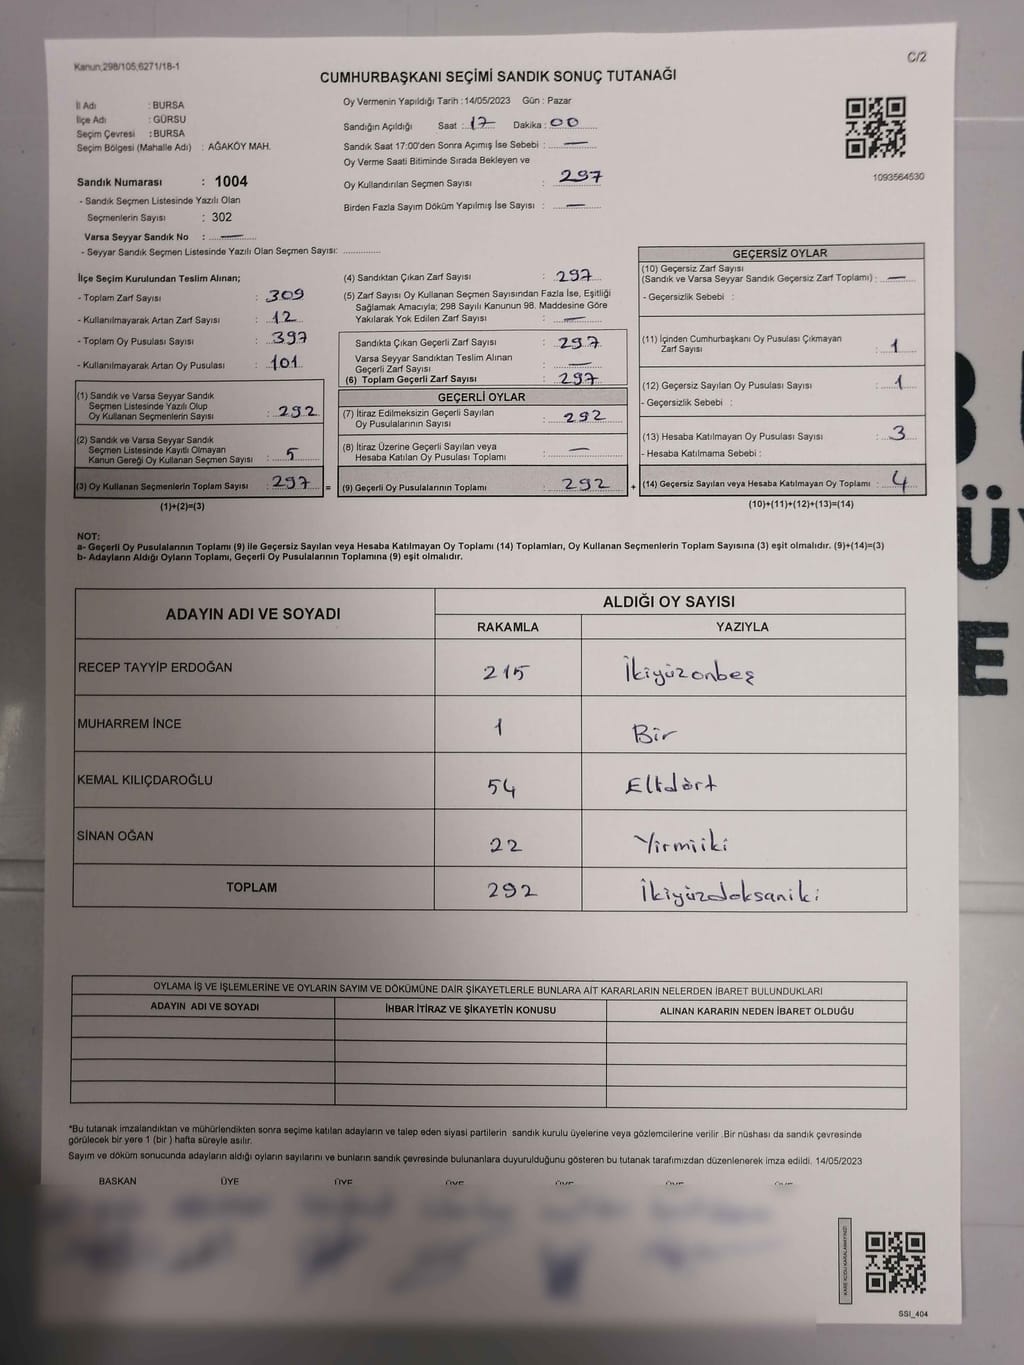 Kanun;298/105;6271/18-1
C/2
CUMHURBAŞKANI SEÇİMİ SANDIK SONUÇ TUTANAĞI
İl Adı : BURSA
İlçe Adı : GÜRSU
Seçim Çevresi : BURSA
Seçim Bölgesi (Mahalle Adı) : AĞAKÖY MAH.
Sandık Numarası : 1004
- Sandık Seçmen Listesinde Yazılı Olan
Seçmenlerin Sayısı : 302
Varsa Seyyar Sandık No : —
- Seyyar Sandık Seçmen Listesinde Yazılı Olan Seçmen Sayısı: ............
Oy Vermenin Yapıldığı Tarih : 14/05/2023 Gün : Pazar
Sandığın Açıldığı Saat : 17 Dakika : 00
Sandık Saat 17:00'den Sonra Açımış İse Sebebi : —
Oy Verme Saati Bitiminde Sırada Bekleyen ve
Oy Kullandırılan Seçmen Sayısı : 297
Birden Fazla Sayım Döküm Yapılmış İse Sayısı : —
1093564530
İlçe Seçim Kurulundan Teslim Alınan;
- Toplam Zarf Sayısı : 309
- Kullanılmayarak Artan Zarf Sayısı : 12
- Toplam Oy Pusulası Sayısı : 397
- Kullanılmayarak Artan Oy Pusulası : 101
(1) Sandık ve Varsa Seyyar Sandık
Seçmen Listesinde Yazılı Olup
Oy Kullanan Seçmenlerin Sayısı : 292
(2) Sandık ve Varsa Seyyar Sandık
Seçmen Listesinde Kayıtlı Olmayan
Kanun Gereği Oy Kullanan Seçmen Sayısı : 5
(3) Oy Kullanan Seçmenlerin Toplam Sayısı : 297 =
(1)+(2)=(3)
(4) Sandıktan Çıkan Zarf Sayısı : 297
(5) Zarf Sayısı Oy Kullanan Seçmen Sayısından Fazla İse, Eşitliği
Sağlamak Amacıyla; 298 Sayılı Kanunun 98. Maddesine Göre
Yakılarak Yok Edilen Zarf Sayısı : —
Sandıkta Çıkan Geçerli Zarf Sayısı : 297
Varsa Seyyar Sandıktan Teslim Alınan
Geçerli Zarf Sayısı : —
(6) Toplam Geçerli Zarf Sayısı : 297
GEÇERLİ OYLAR
(7) İtiraz Edilmeksizin Geçerli Sayılan
Oy Pusulalarının Sayısı : 292
(8) İtiraz Üzerine Geçerli Sayılan veya
Hesaba Katılan Oy Pusulası Toplamı : —
(9) Geçerli Oy Pusulalarının Toplamı : 292 +
GEÇERSİZ OYLAR
(10) Geçersiz Zarf Sayısı
(Sandık ve Varsa Seyyar Sandık Geçersiz Zarf Toplamı) : —
- Geçersizlik Sebebi :
(11) İçinden Cumhurbaşkanı Oy Pusulası Çıkmayan
Zarf Sayısı : 1
(12) Geçersiz Sayılan Oy Pusulası Sayısı : 1
- Geçersizlik Sebebi :
(13) Hesaba Katılmayan Oy Pusulası Sayısı : 3
- Hesaba Katılmama Sebebi :
(14) Geçersiz Sayılan veya Hesaba Katılmayan Oy Toplamı : 4
(10)+(11)+(12)+(13)=(14)
NOT:
a- Geçerli Oy Pusulalarının Toplamı (9) ile Geçersiz Sayılan veya Hesaba Katılmayan Oy Toplamı (14) Toplamları, Oy Kullanan Seçmenlerin Toplam Sayısına (3) eşit olmalıdır. (9)+(14)=(3)
b- Adayların Aldığı Oyların Toplamı, Geçerli Oy Pusulalarının Toplamına (9) eşit olmalıdır.
ADAYIN ADI VE SOYADI ALDIĞI OY SAYISI
RAKAMLA YAZIYLA
RECEP TAYYİP ERDOĞAN 215 İkiyüzonbeş
MUHARREM İNCE 1 Bir
KEMAL KILIÇDAROĞLU 54 Ellidört
SİNAN OĞAN 22 Yirmiiki
TOPLAM 292 İkiyüzdoksaniki
OYLAMA İŞ VE İŞLEMLERİNE VE OYLARIN SAYIM VE DÖKÜMÜNE DAİR ŞİKAYETLERLE BUNLARA AİT KARARLARIN NELERDEN İBARET BULUNDUKLARI
ADAYIN ADI VE SOYADI İHBAR İTİRAZ VE ŞİKAYETİN KONUSU ALINAN KARARIN NEDEN İBARET OLDUĞU
*Bu tutanak imzalandıktan ve mühürlendikten sonra seçime katılan adayların ve talep eden siyasi partilerin sandık kurulu üyelerine veya gözlemcilerine verilir .Bir nüshası da sandık çevresinde
görülecek bir yere 1 (bir ) hafta süreyle asılır.
Sayım ve döküm sonucunda adayların aldığı oyların sayılarını ve bunların sandık çevresinde bulunanlara duyurulduğunu gösteren bu tutanak tarafımızdan düzenlenerek imza edildi. 14/05/2023
BAŞKAN ÜYE ÜYE ÜYE ÜYE ÜYE ÜYE
KARE KODU KARALAMAYINIZ!
SSI_404